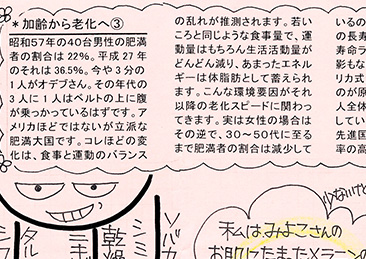 *加齢から老化へ③
昭和57年の40台男性の肥満
者の割合は22%。平成27年
のそれは36.5%。今や3分の
1人がオデブさん。その年代の
3人に1人はベルトの上に腹
が乗っかっているはずです。ア
メリカほどではないが立派な
肥満大国です。コレほどの変
化は、食事と運動のバランス
の乱れが推測されます。若い
ころと同じような食事量で、運
動量はもちろん生活活動量が
どんどん減り、あまったエネル
ギーは体脂肪として蓄えられ
ます。こんな環境要因がそれ
以降の老化スピードに関わっ
てきます。実は女性の場合は
その逆で、30〜50代に至る
まで肥満者の割合は減少して
いるの
の長寿
寿命ラ
影もな
リカ式
のが原
人全体
してい
先進国
率の高
少ないけど
私はみよこさんの